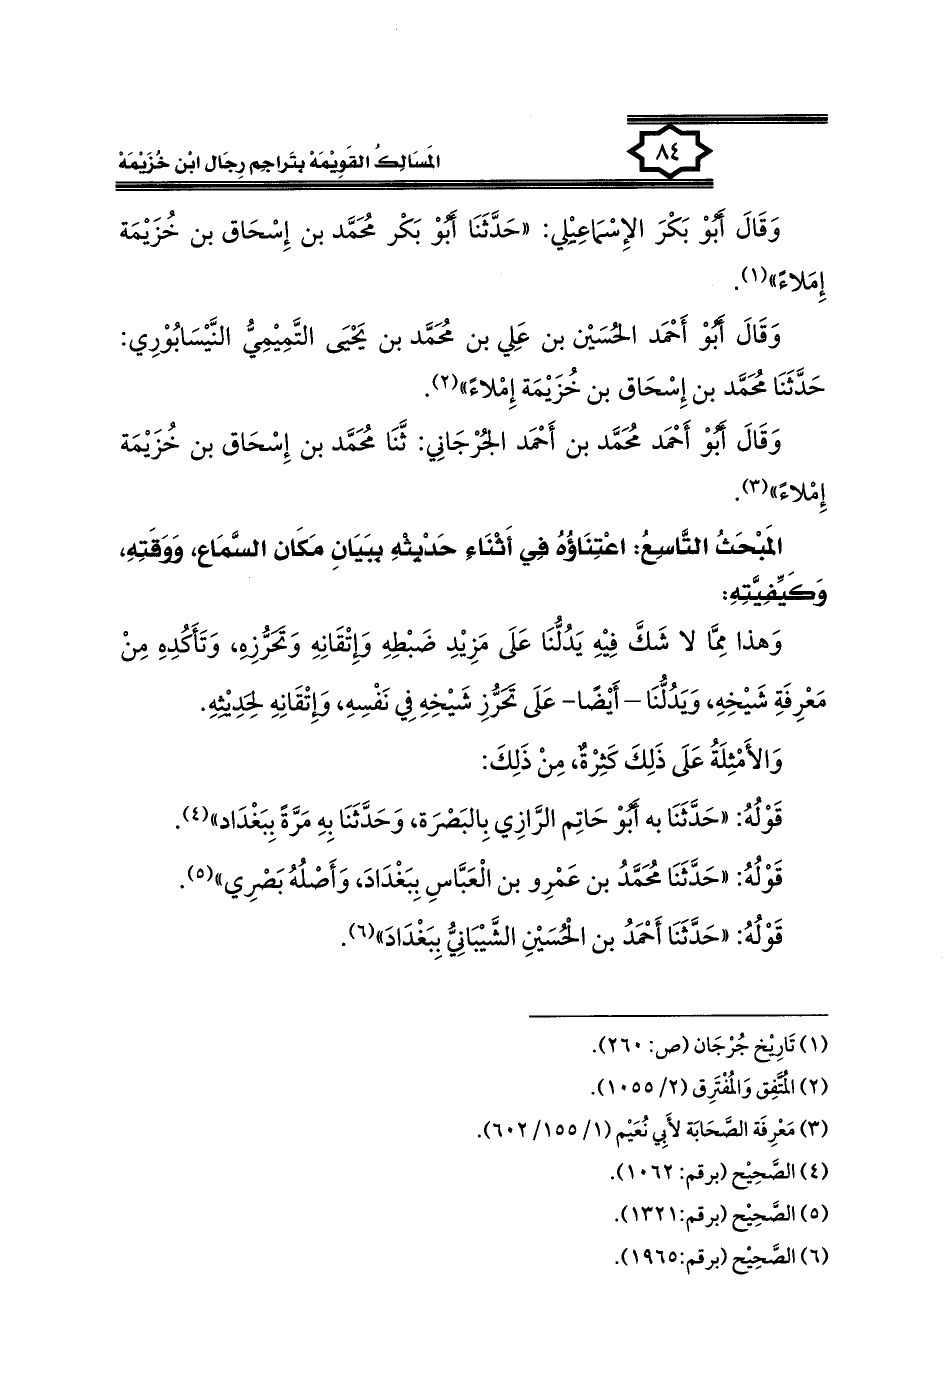 المَسَالِكُ القَوِيْمَة بِتَراجِم رِجَال ابْن خُزَيْمَة
٨٤
وَقَالَ أَبُوْ بَكَرَ الإِسْمَاعِيْلِي: «حَدَّثَنَا أَبُوْ بَكْر مُحَمَّد بن إِسْحَاق بن خُزَيْمَة
إِمَلاءً»(١).
وَقَالَ أَبُوْ أَحْمَد الحُسَيْن بن عَلِي بن مُحَمَّد بن يَحْيَى التَّمِيْمِيُّ النَّيْسَابُوْرِي:
حَدَّثَنَا مُحَمَّد بن إِسْحَاق بن خُزَيْمَة إِمْلاءً»(٢).
وَقَالَ أَبُوْ أَحْمَد مُحَمَّد بن أَحْمَد الجُرْجَانِي: ثَّنَا مُحَمَّد بن إِسْحَاق بن خُزَيْمَة
إِمْلاءً»(٣).
المَبْحَثُ التَّاسِعُ: اعْتِنَاؤُهُ فِي أَثْنَاءِ حَدِيْثِهِ بِبَيَانِ مَكَان السَّمَاع، وَوَقَتِهِ،
وَكَيْفِيَّتِهِ:
وَهذا مِمَّا لا شَكَّ فِيْهِ يَدُلُّنَا عَلَى مَزِيْدِ ضَبْطِهِ وَإِتْقَانِهِ وَتَحَرُّزِهِ، وَتَأَكُدِهِ مِنْ
مَعْرِفَةِ شَيْخِهِ، وَيَدُلُّنَا – أَيْضًا- عَلَى تَحَرُّزِ شَيْخِهِ فِي نَفْسِهِ، وَإِتْقَانِهِ لِحَدِيْثِهِ.
وَالأَمْثِلَةُ عَلَى ذَلِكَ كَثِرْةٌ، مِنْ ذَلِكَ:
قَوْلُهُ: «حَدَّثَنَا به أَبُوْ حَاتِم الرَّازِي بِالبَصْرَة، وَحَدَّثَنَا بِهِ مَرَّةً بِبَغْدَاد»(٤).
قَوْلُهُ: «حَدَّثَنَا مُحَمَّدُ بن عَمْرِو بن الْعَبَّاسِ بِبَغْدَادَ، وَأَصْلُهُ بَصْرِي»(٥).
قَوْلُهُ: «حَدَّثَنَا أَحْمَدُ بن الحُسَيْنِ الشَّيْبَانِيُّ بِبَغْدَادَ»(٦).
(١) تَارِيْخ جُرْجَان (ص: ٢٦٠).
(٢) المُتَّفِق وَالمُفْتَرِق (٢/ ١٠٥٥).
(٣) مَعْرِفَة الصَّحَابَة لأَبِي نُعَيْم (١/ ١٥٥/ ٦٠٢).
(٤) الصَّحِيْح (برقم: ١٠٦٢).
(٥) الصَّحِيْح (برقم:١٣٢١).
(٦) الصَّحِيْح (برقم:١٩٦٥).